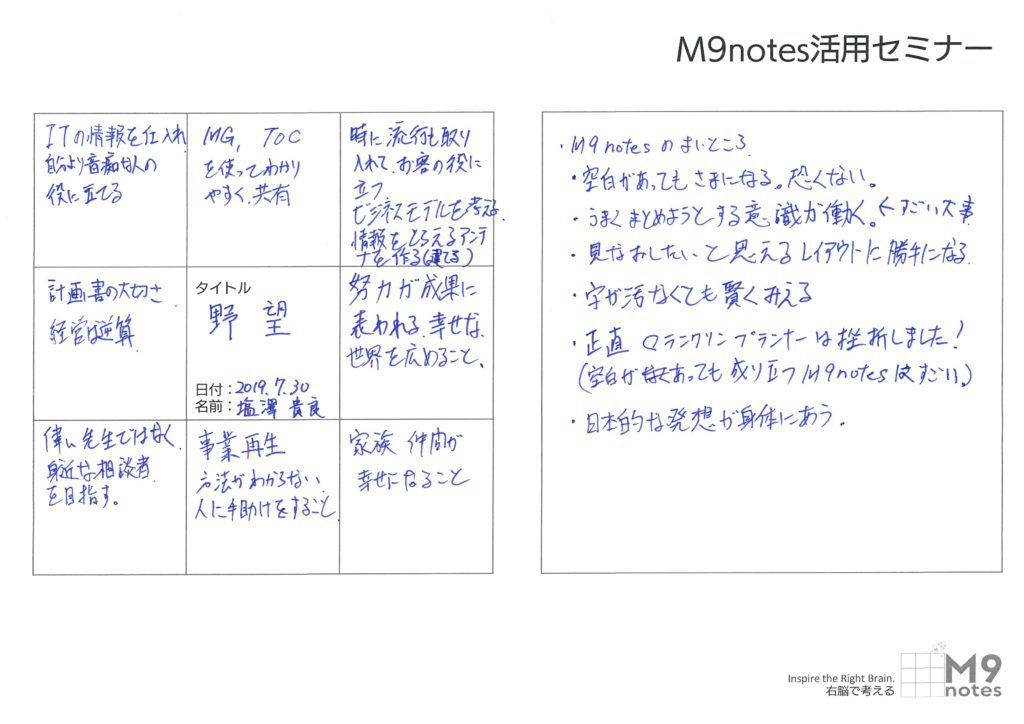 M9notes活用セミナー
ITの情報を仕入れ
自分より音痴な人の
役に立てる
MG, TOC
を使ってわかり
やすく、共有
時に流行も取り
入れて、お客の役に
立つ
ビジネスモデルを考える
情報をとらえるアンテ
ナを作る(建てる)
計画書の大切さ
経営は逆算
タイトル
野望
日付:2019.7.30
名前:塩澤 貴良
努力が成果に
表われる、幸せな
世界を広めること、
偉い先生ではなく
身近な相談者
を目指す。
事業再生
方法がわからない
人に手助けをすること
家族 仲間が
幸せになること
・M9notes のよいところ
・空白があってもさまになる。恐くない。
・うまくまとめようとする意識が働く。←すごい大事
・見なおしたいと思えるレイアウトに勝手になる
・字が汚なくても賢くみえる
・正直 フランクリンプランナーは挫折しました!
(空白があっても成り立つM9notesはすごい。)
・日本的な発想が身体にあう。
Inspire the Right Brain.
右脳で考える
M9
notes